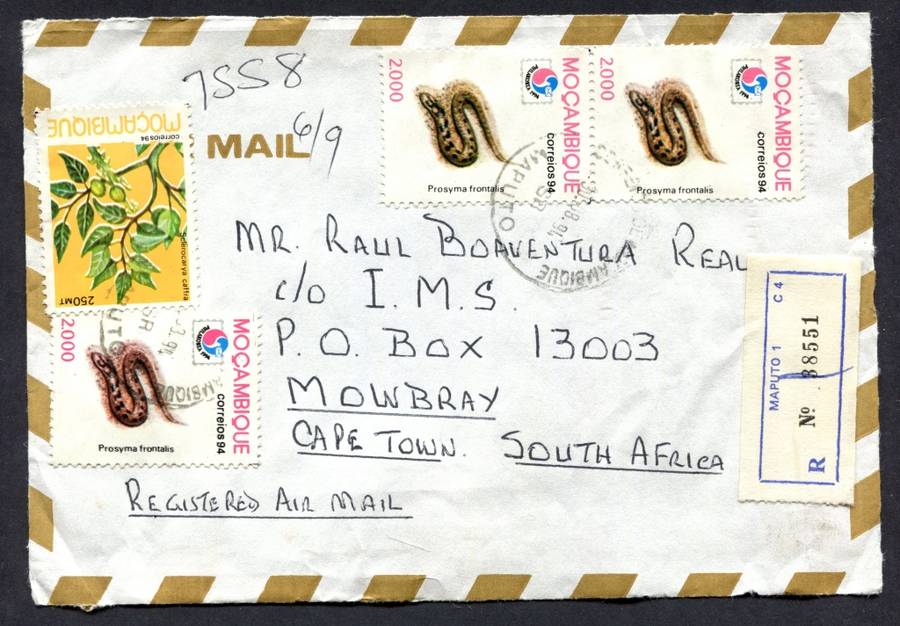 7558
6/9
MAIL
MOÇAMBIQUE
correios 94
Sclerocarya caffra
250MT
2.000
MOÇAMBIQUE
correios 94
Prosyma frontalis
2.000
MOÇAMBIQUE
correios 94
Prosyma frontalis
MAPUTO
MR. RAUL BOAVENTURA REAL
c/o I.M.S.
P.O. BOX 13003
MOWBRAY
CAPE TOWN. SOUTH AFRICA
REGISTERED AIR MAIL
2.000
MOÇAMBIQUE
correios 94
Prosyma frontalis
MAPUTO 1 C 4
Nº 38551
R